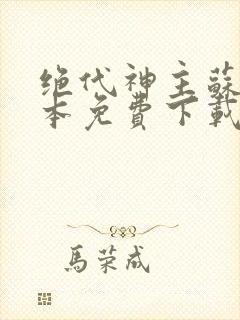 绝代神主蘇
本免費下載
馬荣成